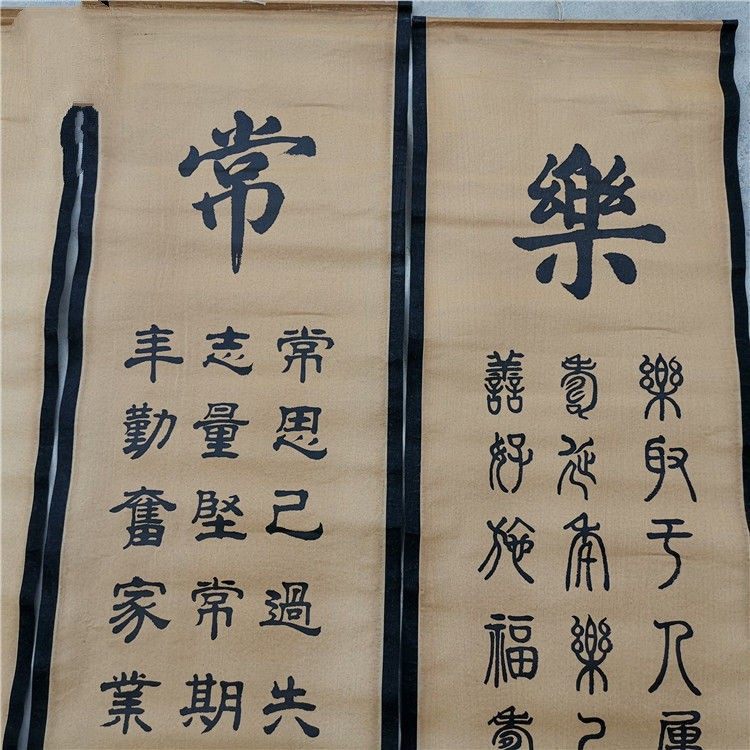 樂
樂取于人
壽延年樂
善好施福壽
常
常思己過失
志量堅常期
年勤奮家業